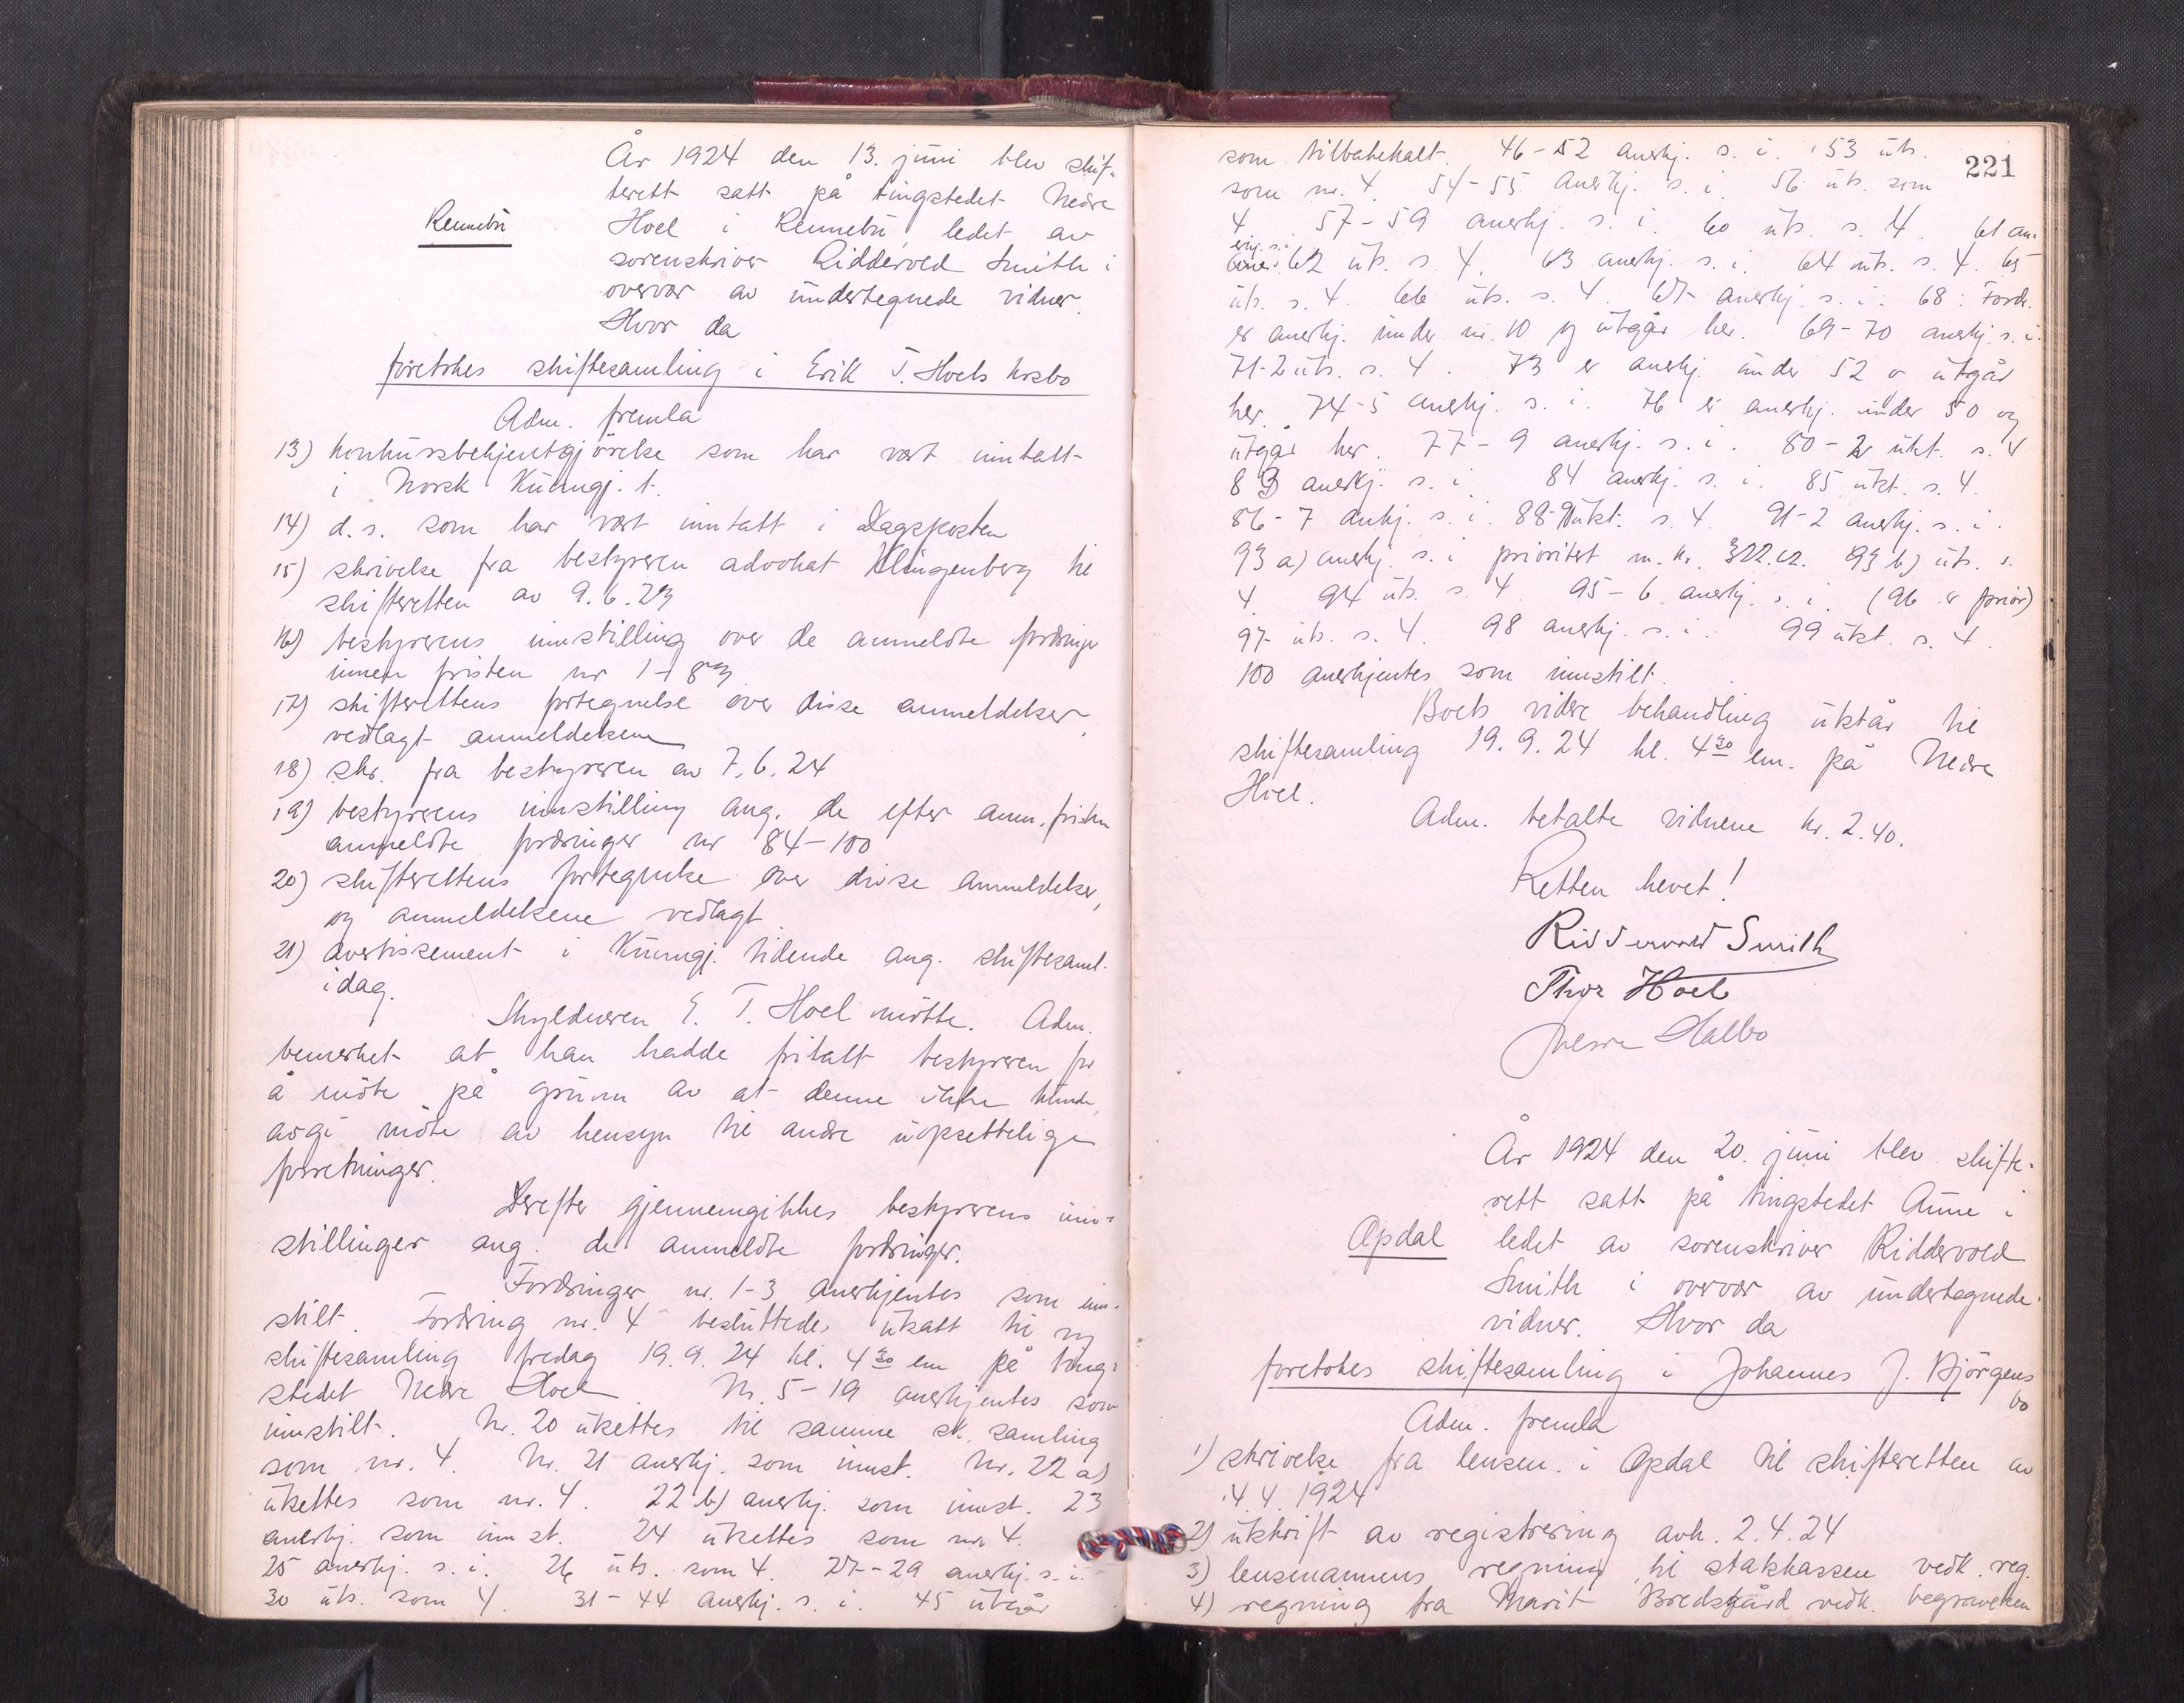 År 1924 den 13. juni blev skif-
terett satt på tingstedet Nedre
Rennebu
Hoel i Rennebu, ledet av
sorenskriver Riddervold Smith i
overvær av undertegnede vidner.
Hvor da
foretokes skiftesamling i Erik T. Hoels knsbo
Adm. fremla
13) konkursbekjentgjørelse som har vært inntatt
i Norsk Kunngj. t.
14) d. s. som har vært inntatt i Dagsposten
15) skrivelse fra bestyreren advokat Klingenberg til
skifteretten av 9.6.23
16) bestyrerens innstilling over de anmeldte fordringer
innen fristen nr 1-83
17) skifterettens fortegnelse over disse anmeldelser,
vedlagt anmeldelsene
18) skr. fra bestyreren av 7.6.24
19) bestyrerens innstilling ang. de efter anm. fristen
anmeldte fordringer nr 84-100
20) skifterettens fortegnelse over disse anmeldelser,
og anmeldelsene vedlagt
21) avertissement i Kunngj. tidende ang. skiftesaml.
idag.
Skyldneren E. T. Hoel møtte. Adm.
bemerket at han hadde fritatt bestyreren for
å møte på grunn av at denne ikke kunde
avgi møte av hensyn til andre uopsettelige
forretninger.
Derefter gjennemgikkes bestyrerens inn-
stillinger ang. de anmeldte fordringer.
Fordringer nr. 1-3 anerkjentes som inn-
stilt. Fordring nr. 4 besluttedes utsatt til ny
skiftesamling fredag 19.9.24 kl. 4³⁰ em på ting-
stedet Nedre Hoel. Nr. 5-19 anerkjentes som
innstilt. Nr. 20 utsettes til samme sk. samling
som nr. 4. Nr. 21 anerkj. som innst. Nr. 22 a)
utsettes som nr. 4. 22 b) anerkj. som innst. 23
anerkj. som innst. 24 utsettes som nr 4.
25 anerkj. s. i. 26 uts. som 4. 27-29 anerkj. s. i.
30 uts. som 4. 31-44 anerkj. s. i. 45 utgår
221
som tilbakekalt. 46-52 anerkj. s. i. 53 uts.
som nr. 4. 54-55 anerkj. s. i. 56 uts. som
4. 57-59 anerkj. s. i. 60 uts. s. 4. 61 an-
erkj. s. i. 62 uts. s. 4. 63 anerkj. s. i. 64 uts. s. 4. 65
uts. s. 4. 66 uts. s. 4. 67 anerkj. s. i. 68: Fordr.
er anerkj. under nr. 10 og utgår her. 69-70 anerkj. s. i.
71-2 uts. s. 4. 73 er anerkj. under 52 o utgår
her. 74-5 anerkj. s. i. 76 er anerkj. under 50 og
utgår her. 77-9 anerkj. s. i. 80-2 utst. s. 4
83 anerkj. s. i. 84 anerkj. s. i. 85 utst. s. 4.
86-7 ankj. s. i. 88-90 utst. s. 4. 91-2 anerkj. s. i.
93 a) anerkj. s. i prioritet m. kr. 322.12. 93 b) uts. s.
4. 94 uts. s. 4. 95-6 anerkj. s. i. (96 er prior)
97 uts. s. 4. 98 anerkj. s. i. 99 utst. s. 4.
100 anerkjentes som innstilt.
Boets videre behandling utstår til
skiftesamling 19.9.24 kl. 4³⁰ em. på Nedre
Hoel.
Adm. betalte vidnene kr. 2.40.
Retten hevet!
Riddervold Smith
Thor Hoel
Halbo
År 1924 den 20. juni blev skifte-
rett satt på tingstedet Aune i
Opdal
ledet av sorenskriver Riddervold
Smith i overvær av undertegnede
vidner. Hvor da
foretokes skiftesamling i Johannes J. Bjørgens
bo
Adm. fremla
1) skrivelse fra lensm. i Opdal til skifteretten av
4.4.1924
2) utskrift av registrering avh. 2.4.24
3) lensmannens regning til statskassen vedk. reg.
4) regning fra Marit Bredsgård vedk. begravelsen